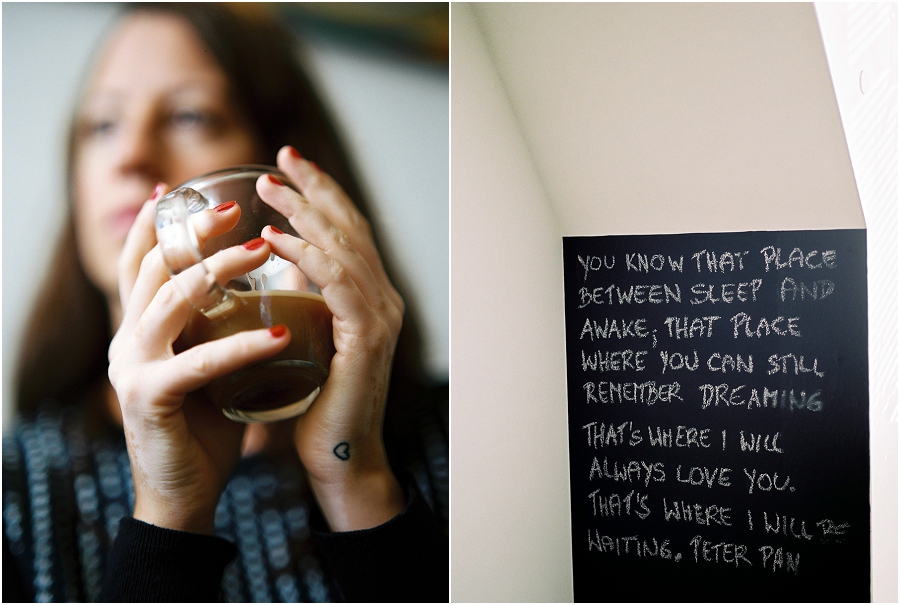 YOU KNOW THAT PLACE
BETWEEN SLEEP AND
AWAKE; THAT PLACE
WHERE YOU CAN STILL
REMEMBER DREAMING
THAT'S WHERE I WILL
ALWAYS LOVE YOU.
THAT'S WHERE I WILL BE
WAITING. PETER PAN